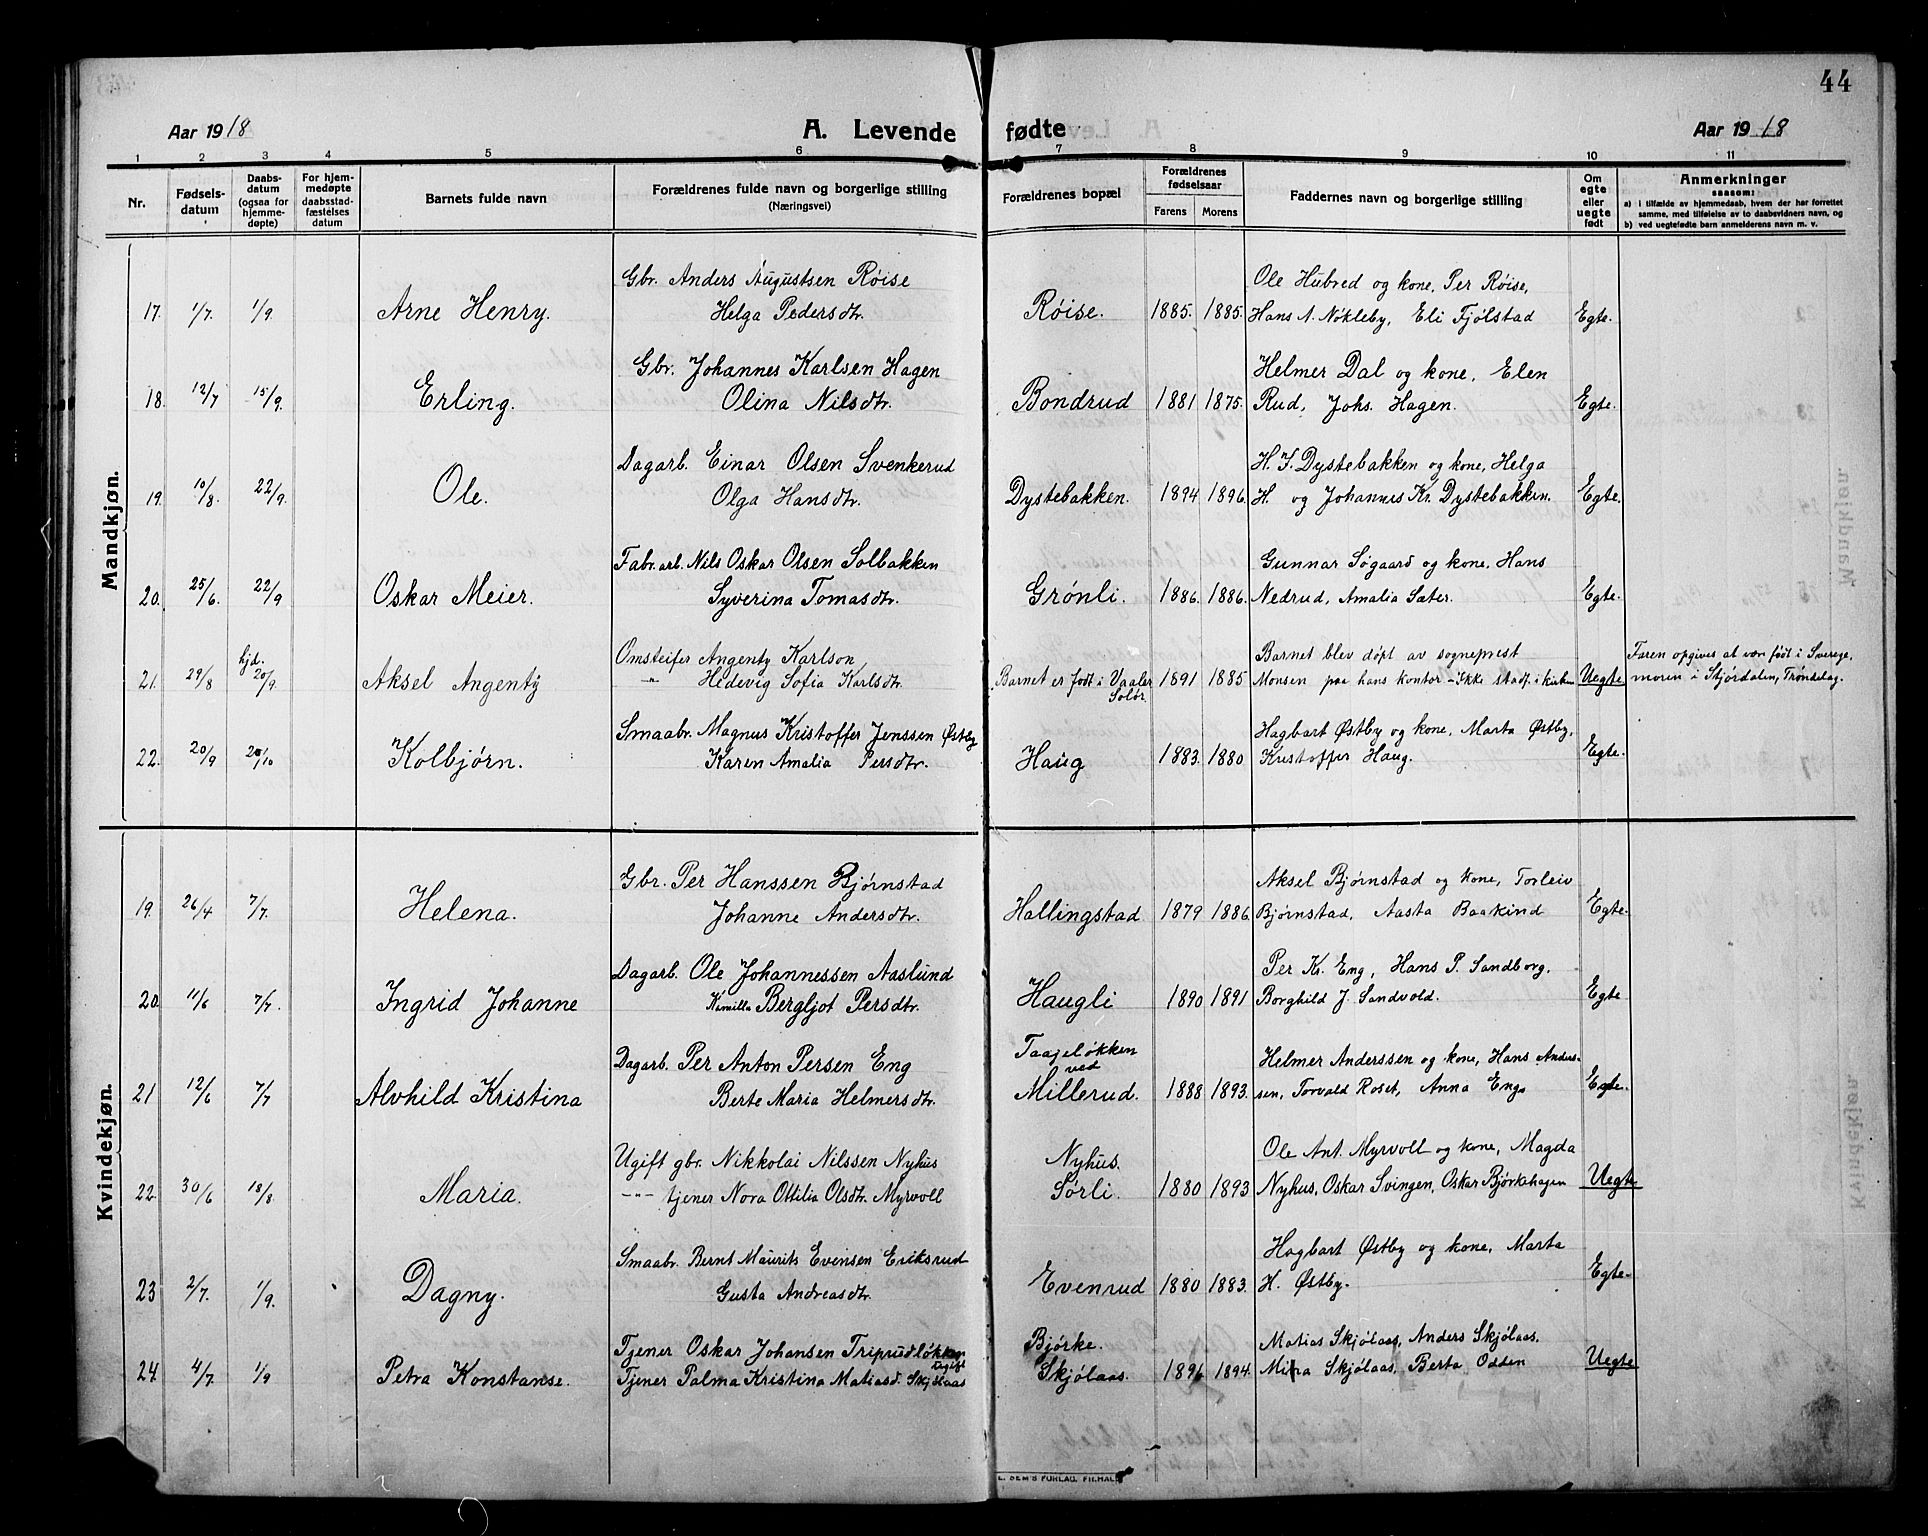 44
Aar 1918
A. Levende fødte
Aar 1918
1 2 3 4 5 6 7 8 9 10 11
Nr.
Fødsels-
datum
Daabs-
datum
(ogsaa for
hjemme-
døpte)
For hjem-
medøpte
daabsstad-
fæstelses
datum
Barnets fulde navn
Forældrenes fulde navn og borgerlige stilling
(Næringsvei)
Forældrenes bopæl
Forældrenes
fødselsaar
Farens Morens
Faddernes navn og borgerlige stilling
Om
egte
eller
uegte
født
Anmerkninger
saasom:
a) i tilfælde av hjemmedaab, hvem der har forrettet
samme, med tilføielse av to daabsvidners navn, og
b) ved uegtefødte barn anmelderens navn m. v.
Mandkjøn.
Gbr. Anders Augustsen Røise Ole Hubred og kone, Per Røise,
17. 1/7. 1/9. Arne Henry. Helga Pedersdtr. Røise. 1885. 1885. Hans A. Nøkleby, Eli Fjølstad Egte.
Gbr. Johannes Karlsen Hagen Helmer Dal og kone, Elen
18. 12/7 15/9. Erling. Olina Nilsdtr. Bondrud 1881 1875. Rud, Johs. Hagen. Egte.
Dagarb. Einar Olsen Svenkerud H. J. Dystebakken og kone, Helga
19. 10/8. 22/9. Ole. Olga Hansdtr. Dystebakken. 1894 1896. H. og Johannes Kr. Dystebakken. Egte.
Fabr.arb. Nils Oskar Olsen Solbakken Gunnar Søgaard og kone, Hans
20. 25/6. 22/9 Oskar Meier. Syverina Tomasdtr. Grønli. 1886. 1886. Nedrud, Amalia Sæter. Egte.
hjd. Omstreifer Angenty Karlson Barnet blev døpt av sogneprest Faren opgives at være født i Sverege,
21. 29/8 20/9. Aksel Angentÿ " Hedevig Sofia Karlsdtr. Barnet er født i Vaaler Solør. 1891 1885 Monsen paa hans kontor – Ikke stadf. i kirken Uegte moren i Stjørdalen, Trøndelag.
Smaabr. Magnus Kristoffer Jenssen Østby Hagbart Østby og kone, Marta Østby,
22. 20/9 20/10 Kolbjørn. Karen Amalia Persdtr. Haug 1883. 1880 Kristoffer Haug. Egte.
Kvindekjøn.
Gbr. Per Hanssen Bjørnstad Aksel Bjørnstad og kone, Torleiv
19. 26/4 7/7. Helena. Johanne Andersdtr. Hallingstad 1879 1886. Bjørnstad, Aasta Baakind Egte.
Dagarb. Ole Johannessen Aaslund Per Kr. Eng, Hans P. Sandborg,
20. 11/6 7/7. Ingrid Johanne Kamilla Bergljot Persdtr. Haugli 1890 1891 Borghild J. Sandvold. Egte
Dagarb. Per Anton Persen Eng Taajeløkken ved Helmer Anderssen og kone, Hans Anders-
21 12/6 7/7 Alvhild Kristina Berte Maria Helmersdtr. Millerud. 1888 1893. sen, Torvald Roset, Anna Eng. Egte.
Ugift gbr. Nikkolai Nilssen Nyhus Nyhus. Ole Ant. Myrvoll og kone, Magda
22. 30/6 18/8. Maria. –"– tjener Nora Ottilia Olsdtr. Myrvoll Sørli. 1880 1893 Nyhus, Oskar Svingen, Oskar Bjørkehagen Uegte
Smaabr. Bernt Maurits Evensen Eriksrud Hagbart Østby og kone, Marta
23 2/7. 1/9. Dagny. Gusta Andreasdtr. Evenrud 1880 1883. H. Østby. Egte.
Tjener Oskar Johansen Triprudløkken Bjørke. Matias Skjølaas, Anders Skjølaas.
24 4/7. 1/9 Petra Konstanse. Tjener Palma Kristina Matiasd. Skjølaas Ugift Skjølaas. 1896 1894. Mina Skjølaas, Berta Odden Uegte